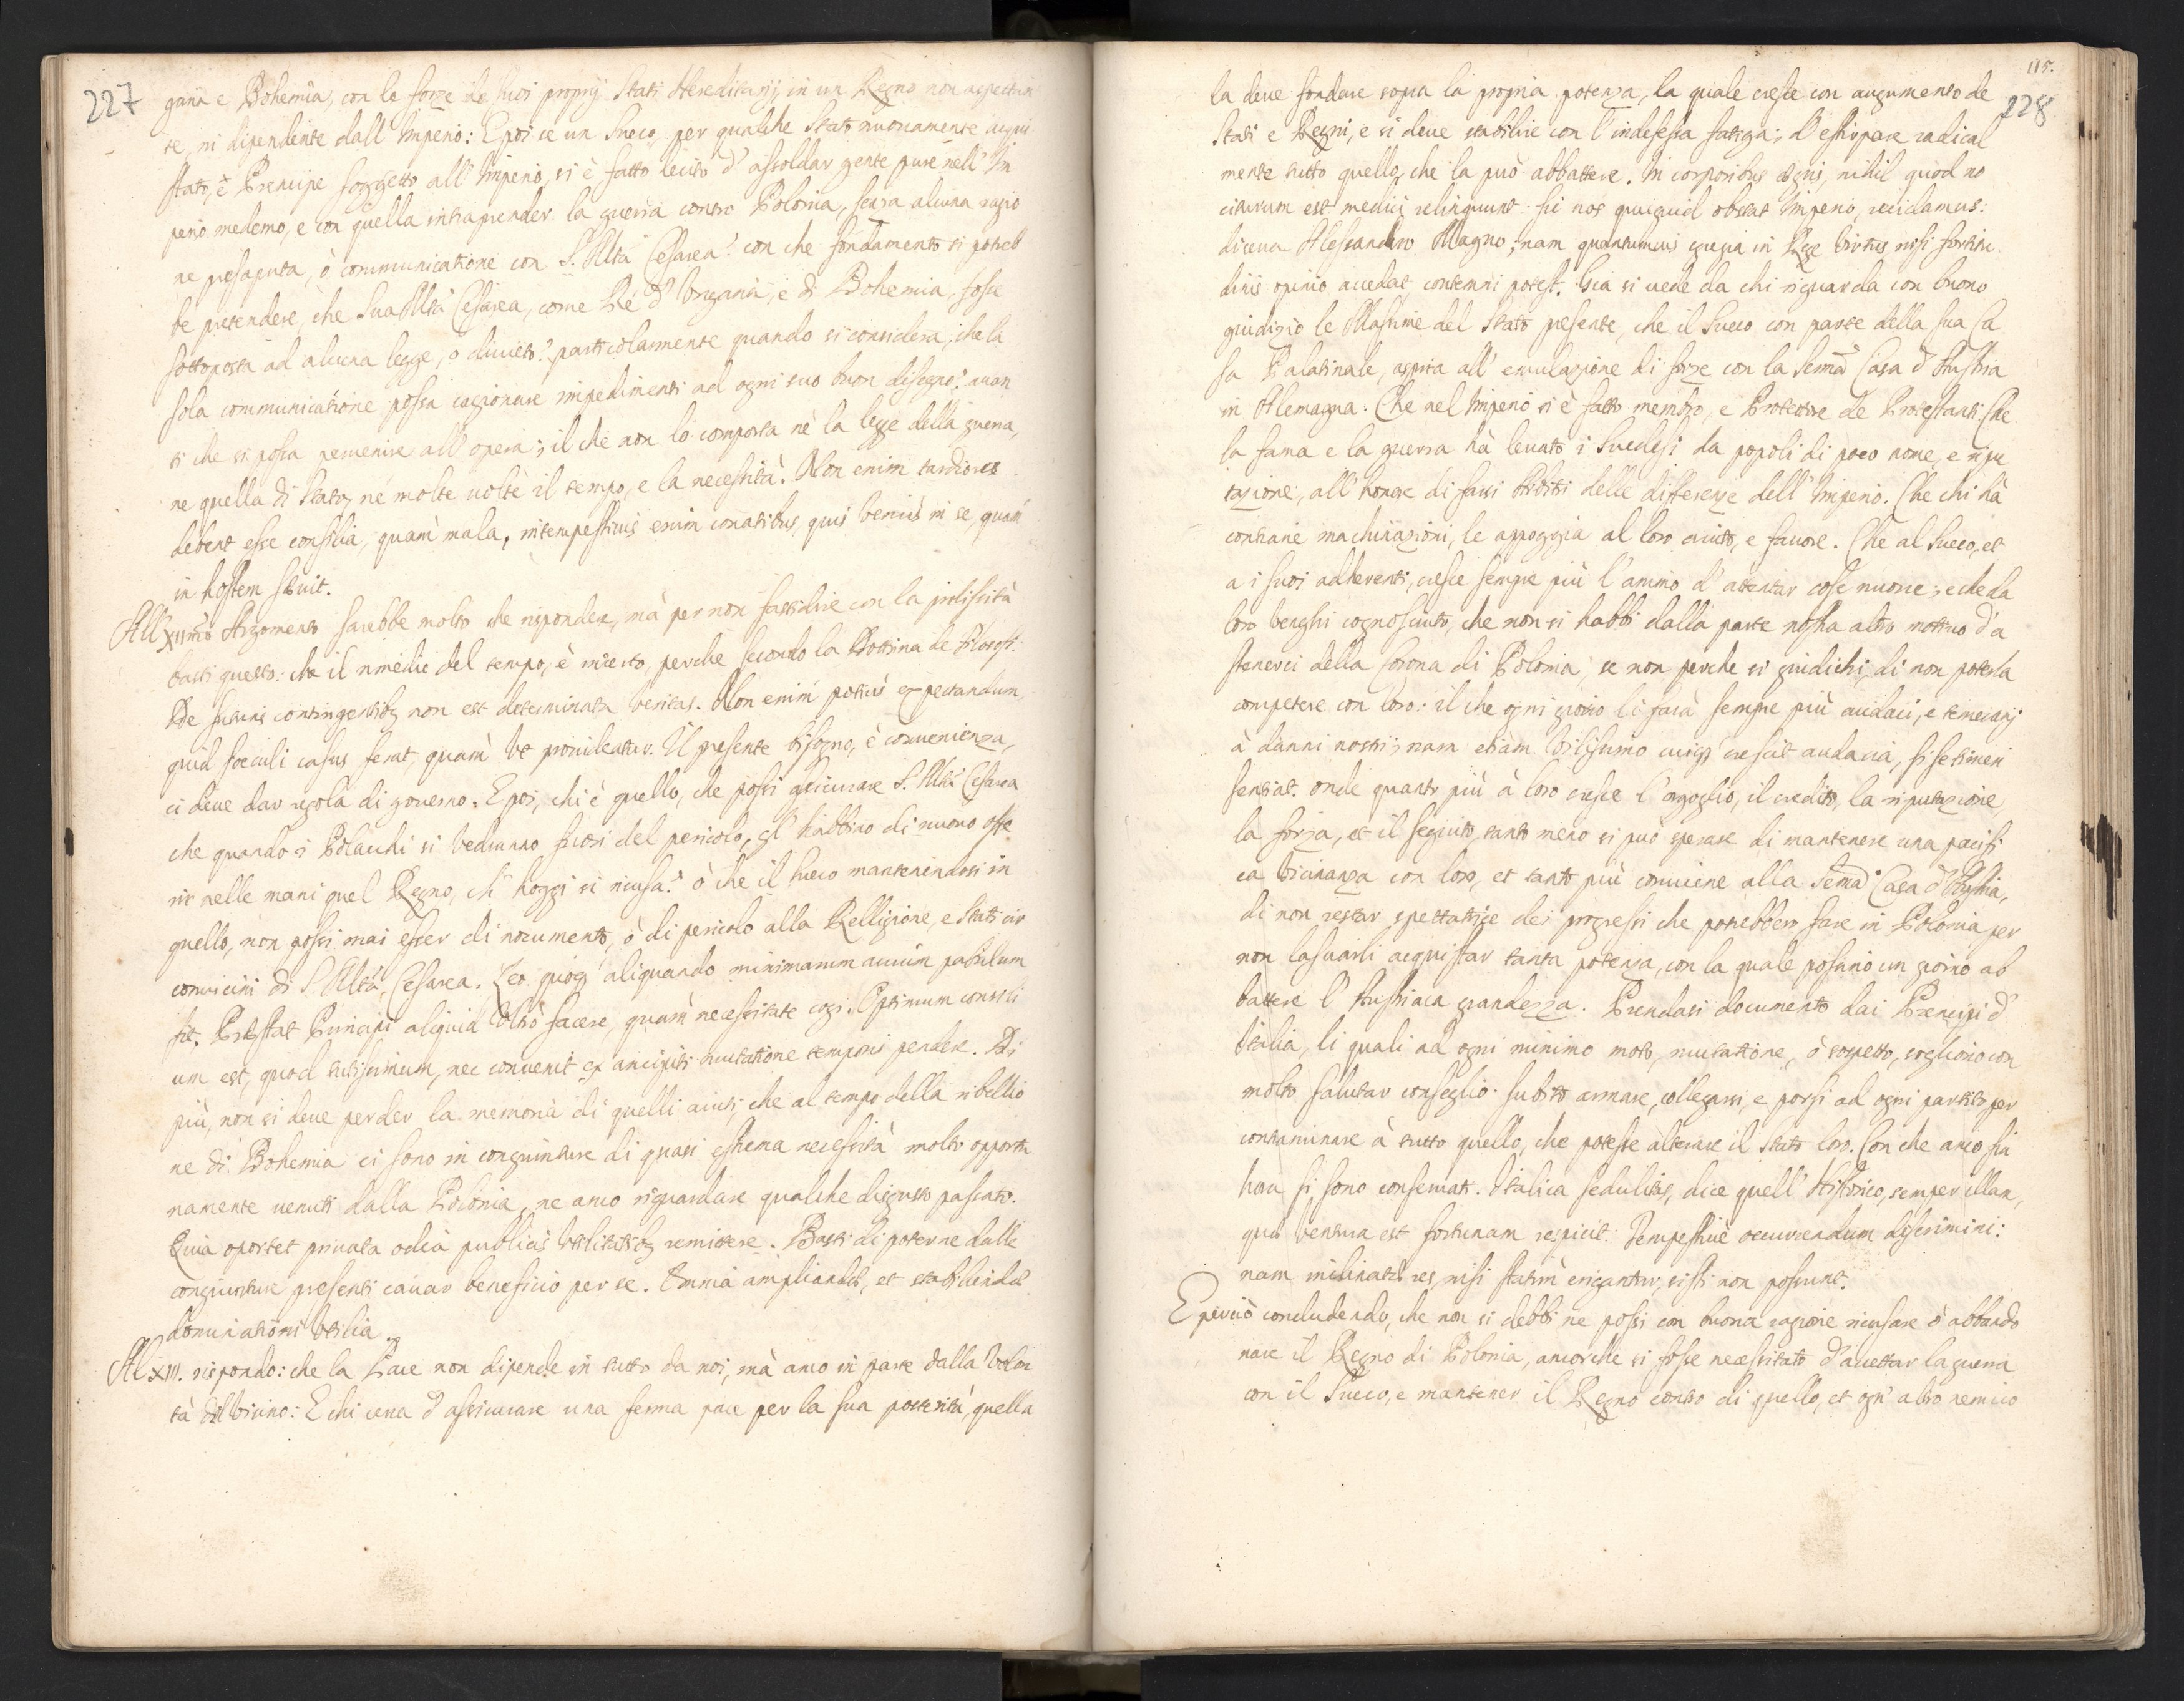 227
garia e Bohemia, con le forze de suoi proprij Stati Hereditarij, in un Regno non aspettan
te, ni dipendente dall' Imperio: E poi se un Sueco per qualche Stato nuovamente acqui
stato, è Prencipe soggetto all' Imperio, si è fatto lecito d' assoldar gente pure nell' Im
perio medemo, e con quella intraprender la guerra contro Polonia, senza alcuna ragio
ne presaputa, ò communicatione con S. Mtà Cesarea? con che fondamento si potreb
be pretendere, che Sua Mtà Cesarea, come Ré d' Ongaria, e di Bohemia, fosse
sottoposta ad alcuna legge, o divieto? particolarmente quando si considera, che la
sola communicatione possa cagionare impedimenti ad ogni suo buon disegno: avan
ti che si possa pervenire all' opera; il che non lo comporta nè la legge della guerra,
ne quella di Stato, né molte uolte il tempo, e la necessità. Non enim tardiora
debent esse consilia, quam mala, intempestivis enim conatibus, quis beniùs in se, quam
in hostem sæuit.
All' XIImo Argomento sarebbe molto che rispondere, mà per non fastidire con la prolissità
basti questo: che il rimedio del tempo, è incerto, perche secondo la Dottrina de Filosofi:
De futuris contingentibq non est determinata veritas. Non enim potiùs expectandum
quid sœculi casus ferat, quam vt prouideatur. Il presente bisogno, è convenienza,
ci deue dar regola di governo. E poi, chi è quello, che possi assicurare S. Mtà Cesarea
che quando i Polacchi si vedranno fuori del pericolo, gl' habbino di nuovo offe
rir nelle mani quel Regno, ch' hoggi si ricusa? ò che il Sueco mantenendosi in
quello, non possi mai esser di nocumento, ò di pericolo alla Relligione, e Stati cir
conuicini di S. Mtà Cesarea. Leo quoq aliquando minimarum auium pabulum
fit. Præstat Principi aliquid vltrò facere, quam necessitate cogi. Optimum consili
um est, quod tutissimum, nec conuenit ex ancipiti mutatione temporis pendere. Di
più, non si deue perder la memoria di quelli aiuti, che al tempo della ribellio
ne di Bohemia ci sono in congiunture di quasi estrema necessità molto opportu
namente venuti dalla Polonia, ne anco riguardare qualche disgusto passato.
Quia oportet privata odia publicis vtilitatibq remittere. Basti di poterne dalle
congiunture presenti cavar beneficio per se. Omnia ampliandæ, et stabiliendæ
dominationi vtilia.
Al XIII. rispondo: che la Pace non dipende in tutto da noi, mà anco in parte dalla volon
tà del vicino: E chi cerca d' assicurare una ferma pace per la sua posterità, quella
115.
228
la deue fondare sopra la propria potenza, la quale cresce con augumento de
Stati e Regni, e si deue stabilire con l' indefessa fatiga, d' estirpare radical
mente tutto quello, che la può abbattere. In corporibus ægris, nihil quod no
citurum est medici relinquunt: sic nos quicquid obstat Imperio, recidamus:
diceua Alessandro Magno; nam quantumuis egregia in Rege virtus, nisi fortitu
dinis opinio accedat, contemni potest. Gia si uede da chi riguarda con buono
giudizio le Massime del Stato presente, che il Sueco con parte della sua Ca
sa Palatinale, aspira all' emulazione di forze con la Serma Casa d' Austria
in Alemagna. Che nel Imperio si è fatto membro, e Protettore de Protestanti. Che
la fama e la guerra hà leuato i Suedesi da popoli di poco nome, e ripu
tazione, all' honore di farsi Arbitri delle differenze dell' Imperio. Che chi hà
contrarie machinazioni, le appoggia al loro aiuto, e favore. Che al Sueco, et
a i suoi adherenti, cresce sempre più l' animo d' attentar cose nuove; e che da
loro venghi cognosciuto, che non si habbi dalla parte nostra altro motivo d' a
stenerci della Corona di Polonia, se non perche si giudichi, di non poterla
competere con loro: il che ogni giorno li farà sempre più audaci, e temerarij
à danni nostri; nam etiam vilissimo cuiq crescit audacia, si se timeri
sentiat. onde quanto più à loro cresce l' orgoglio, il credito, la riputazione,
la forza, et il seguito, tanto meno si può sperare di mantenere una pacifi
ca vicinanza con loro, et tanto più conuiene alla Serma Casa d' Austria,
di non restar spettatrice dei progressi che potrebbero fare in Polonia per
non lasciarli acquistar tanta potenza, con la quale possino un giorno ab
battere l' Austriaca grandezza. Prendasi documento dai Prencipi d'
Italia, li quali ad ogni minimo moto, mutatione, ò sospetto, sogliono con
molto salutar conseglio subito armare, collegarsi, e porsi ad ogni partito per
contraminare à tutto quello, che potesse alterare il Stato loro. Con che anco sin
hora si sono conseruati. Italica sedulitas, dice quell' Historico, semper illam,
quæ ventura est fortunam respicit. Tempestiuè occurrendum discrimini:
nam inclinatæ res, nisi statim erigantur, sisti non possunt.
E perciò concludendo, che non si debbi ne possi con buona ragione ricusare ò abbando
nare il Regno di Polonia, ancorche si fosse necessitato d' accettar la guerra
con il Sueco, e mantener il Regno contro di quello, et ogn' altro nemico